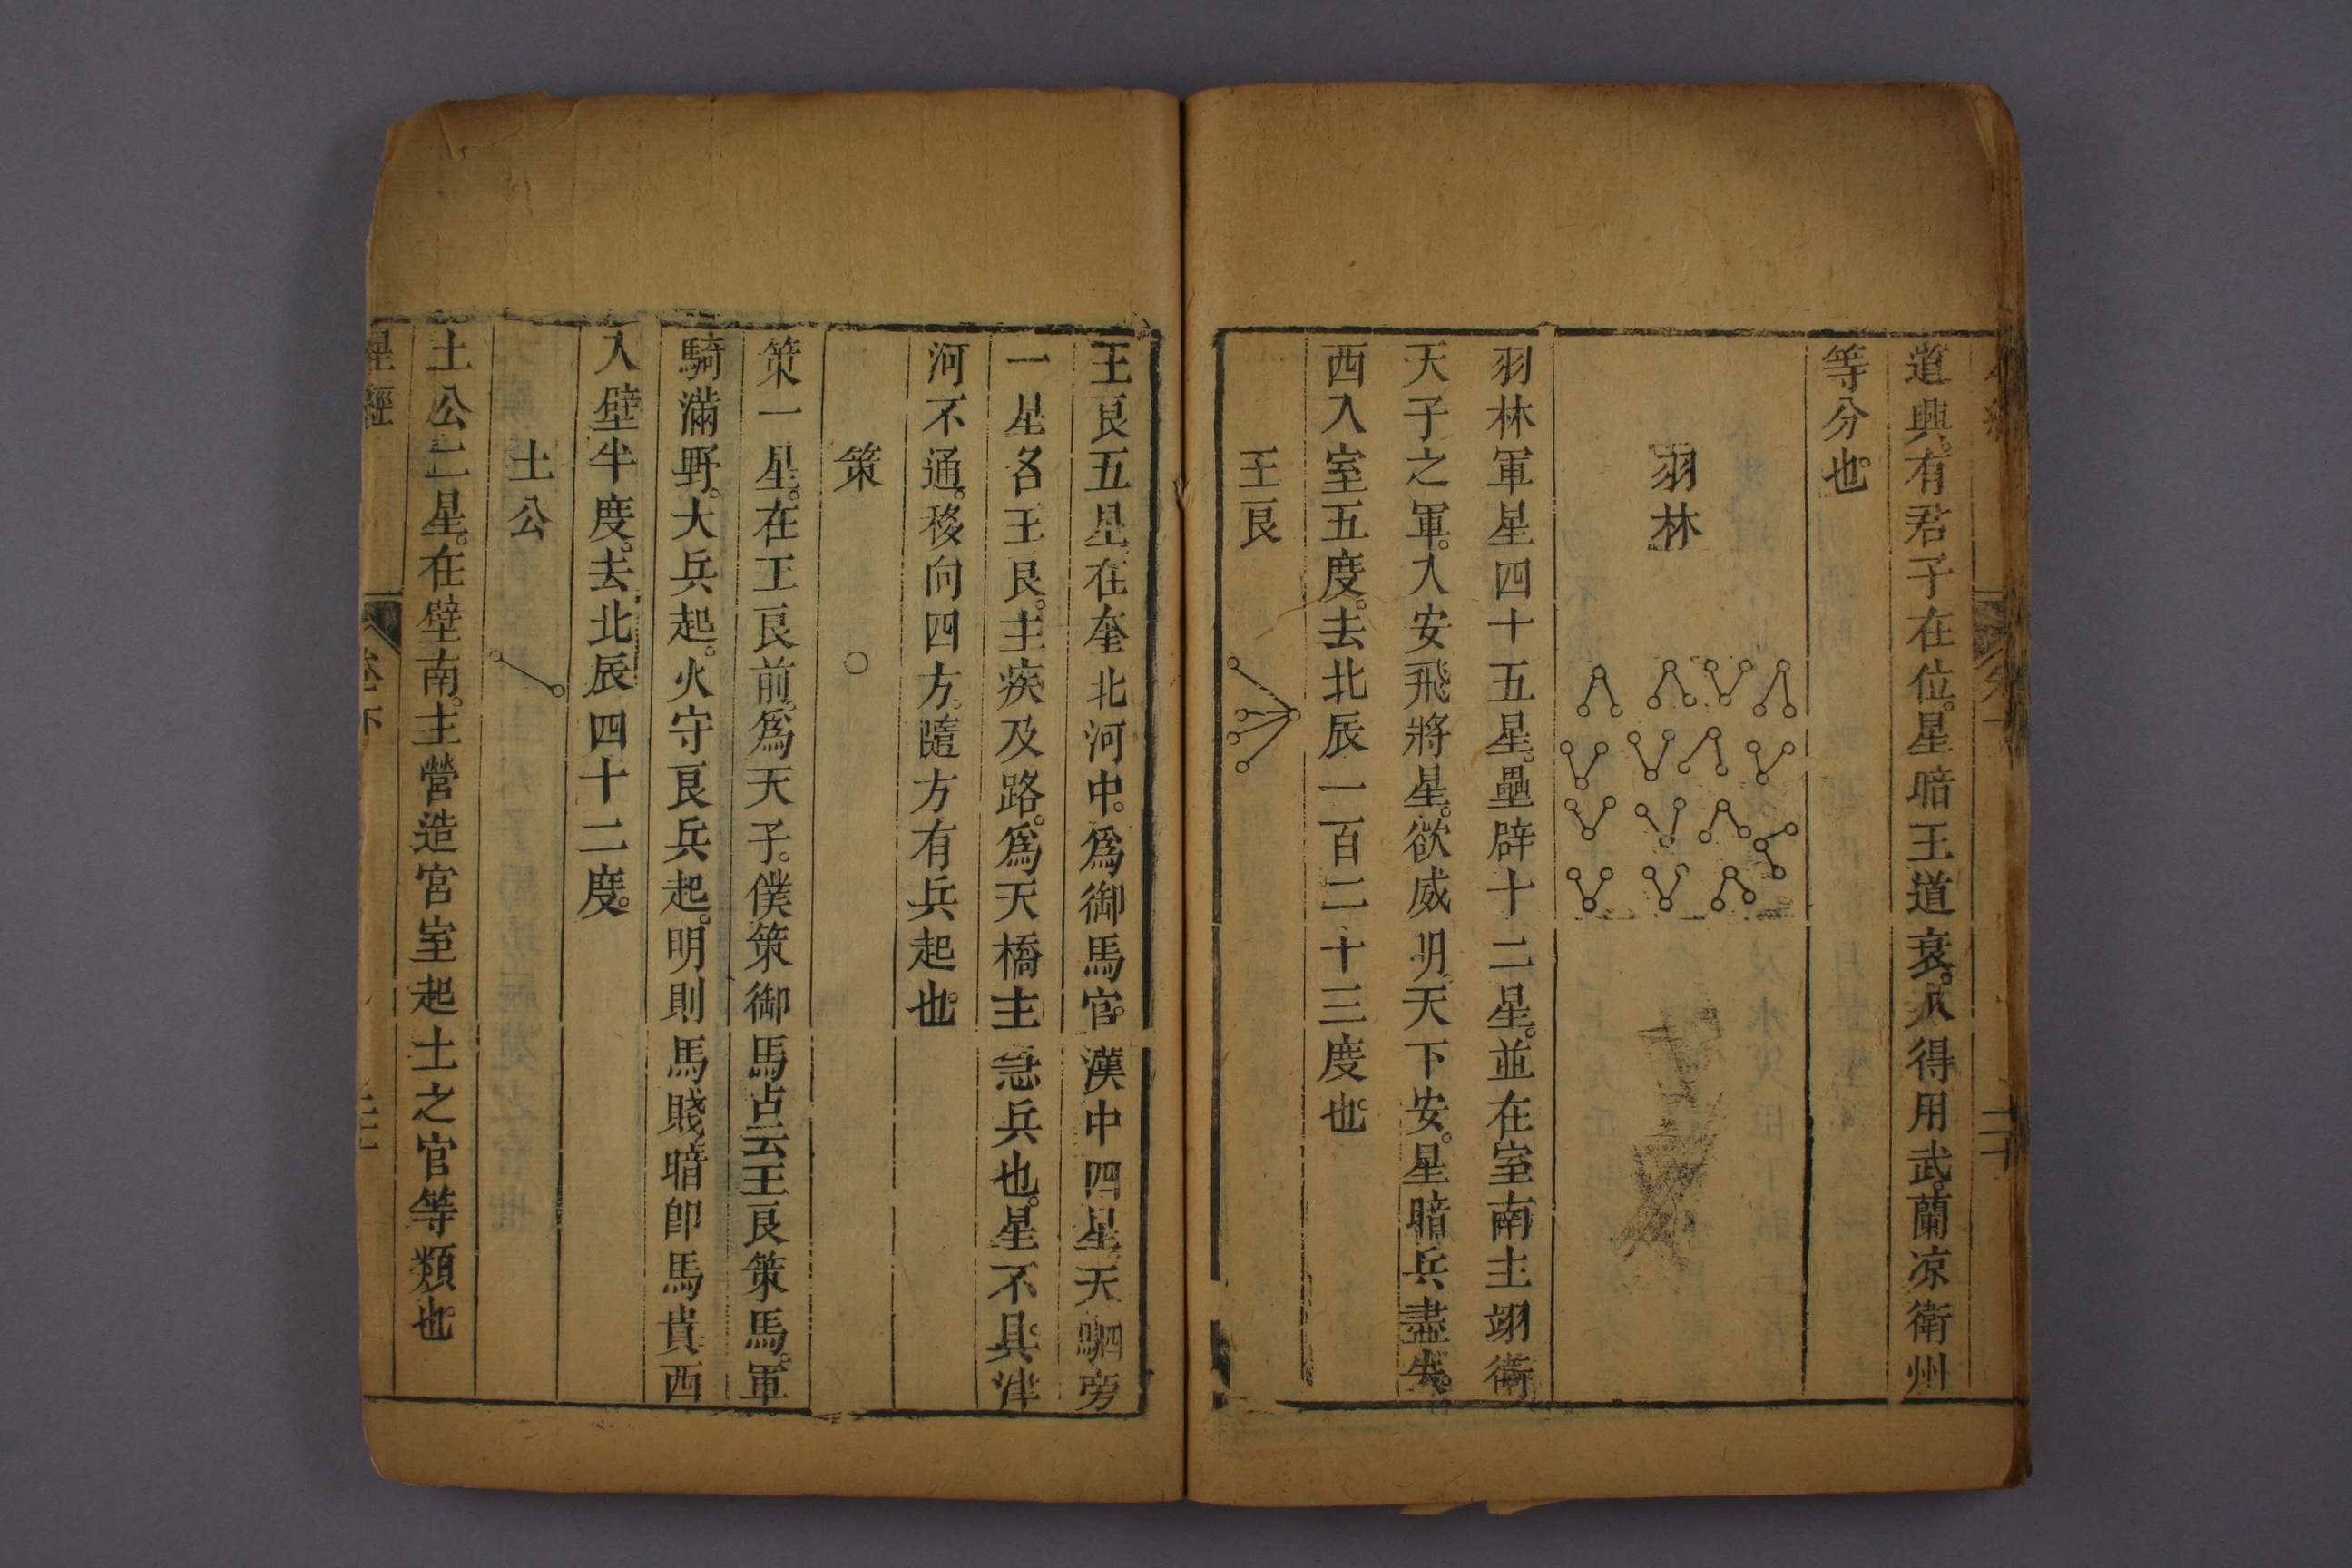 道興。有君子在位。星暗王道衰。人得用武。蘭凉衛州
等分也。
羽林
羽林軍星四十五星。壘辟十二星。並在室南主翊衛
天子之軍。入安飛將星。欲威明。天下安。星暗兵盡失。
西入室五度。去北辰一百二十三度也。
王良
王良五星在奎北河中。爲御馬官。漢中四星。天駟旁
一星各王良。主疾及路。爲天橋主急兵也。星不具。津
河不通。移向四方。隨方有兵起也。
策
策一星。在王良前。爲天子。僕策御馬占云王良策馬。軍
騎滿野。大兵起。火守良兵起。明則馬賤暗卽馬貴西
入壁半度。去北辰四十二度。
土公
土公二星。在壁南。主營造宮室起土之官等類也。
星經
卷下